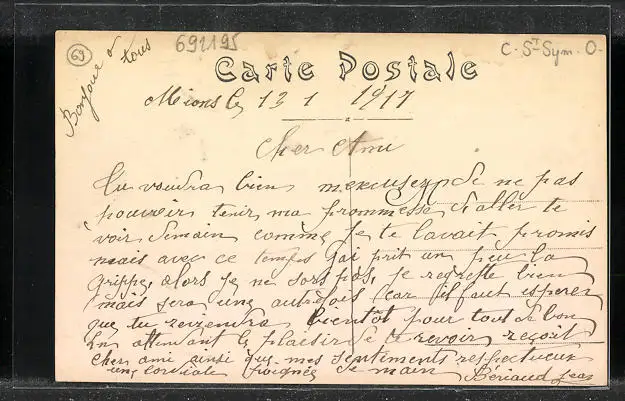 69
Bonjour a tous
691195
C. St Sym. O.
Carte Postale
Mions le 13 1 1917
Cher Ami
Tu voudra bien mexcuser de ne pas
pouvoir tenir ma prommesse d'aller te
voir demain comme je te lavait promis
mais avec ce temps jai prit un peu la
grippe, alors je ne sors pas, je regrette bien
mais sera une autrefois car il faut esperer
que tu reviendra bientôt pour tout de bon
En attendant le plaisir de te revoir reçoit
cher ami ainsi que mes sentiments respectueux
une cordiale poignée de main Bériaud Jean